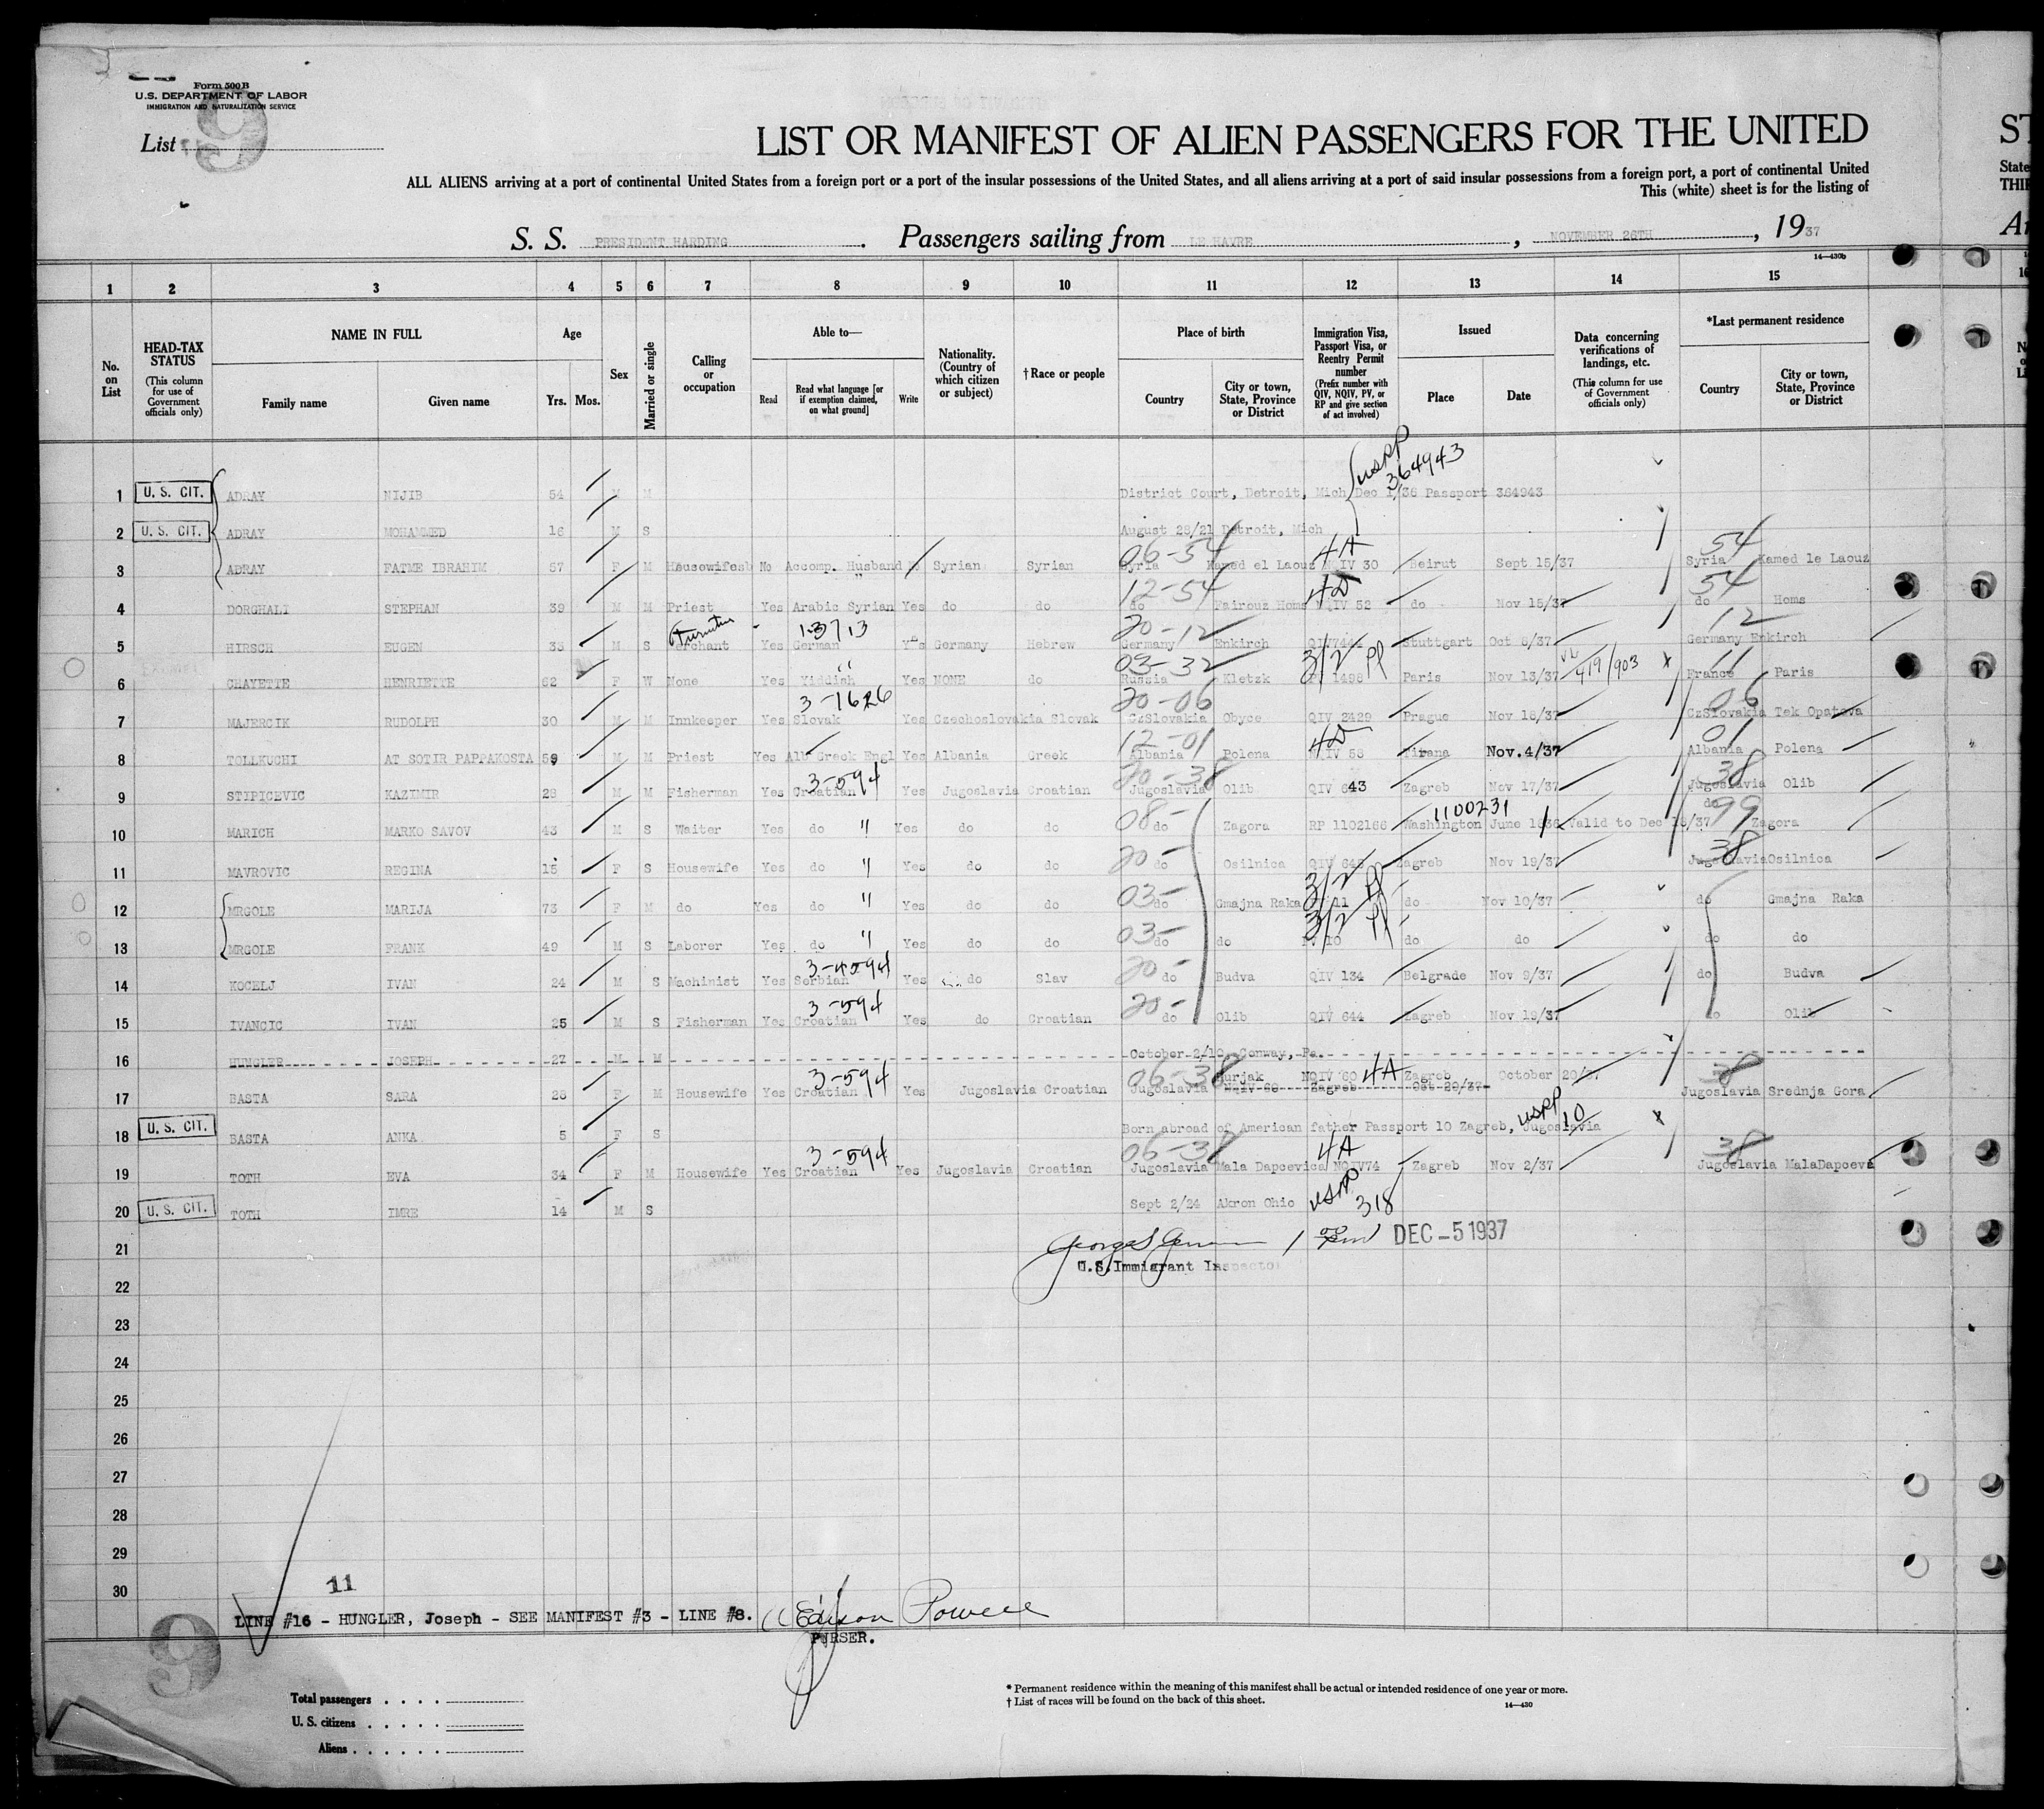 Form 500B
U.S. DEPARTMENT OF LABOR
IMMIGRATION AND NATURALIZATION SERVICE
List 9
LIST OR MANIFEST OF ALIEN PASSENGERS FOR THE UNITED ST
ALL ALIENS arriving at a port of continental United States from a foreign port or a port of the insular possessions of the United States, and all aliens arriving at a port of said insular possessions from a foreign port, a port of continental United State
This (white) sheet is for the listing of THI
S. S. PRESIDENT HARDING. Passengers sailing from LE HAVRE, NOVEMBER 26TH, 1937
14—430b
1 2 3 4 5 6 7 8 9 10 11 12 13 14 15
No. on List
HEAD-TAX STATUS (This column for use of Government officials only)
NAME IN FULL
Family name Given name
Age
Yrs. Mos.
Sex
Married or single
Calling or occupation
Able to—
Read Read what language [or if exemption claimed, on what ground] Write
Nationality. (Country of which citizen or subject)
†Race or people
Place of birth
Country City or town, State, Province or District
Immigration Visa, Passport Visa, or Reentry Permit number (Prefix number with QIV, NQIV, PV, or RP and give section of act involved)
Issued
Place Date
Data concerning verifications of landings, etc. (This column for use of Government officials only)
*Last permanent residence
Country City or town, State, Province or District
USPP 364943
1 U. S. CIT. ADRAY NIJIB 54 M M District Court, Detroit, Mich Dec 1/36 Passport 364943
2 U. S. CIT. ADRAY MOHAMMED 16 M S August 28/21 Detroit, Mich
06-54 4A 54
3 ADRAY FATME IBRAHIM 57 F M No Accomp. Husband Syrian Syrian Syria Kamed el Laouz NQIV 30 Beirut Sept 15/37 Syria Kamed le Laouz
12-54 4D 54
4 DORGHALI STEPHAN 39 M M Priest Yes Arabic Syrian Yes do do do Fairouz Homs NQIV 52 do Nov 15/37 do Homs
Furniture 20-12 12
5 HIRSCH EUGEN 33 M S Merchant Yes German Yes Germany Hebrew Germany Enkirch Stuttgart Oct 8/37 Germany Enkirch
" 03-32 3/2 Pl 419/903 11
6 CHAYETTE HENRIETTE 62 F W None Yes Yiddish Yes NONE do Russia Kletzk PV 1498 Paris Nov 13/37 France Paris
3-1626 20-06 06
7 MAJERCIK RUDOLPH 30 M M Innkeeper Yes Slovak Yes Czechoslovakia Slovak CzSlovakia Obyce QIV 2429 Prague Nov 18/37 CzSlovakia Tek Opatova
12-01 4D 01
8 TOLLKUCHI AT SOTIR PAPPAKOSTA 59 M M Priest Yes Alb Greek Engl Yes Albania Greek Albania Polena NQIV 58 Tirana Nov.4/37 Albania Polena
3-594 20-38 38
9 STIPICEVIC KAZIMIR 28 M M Fisherman Yes Croatian Yes Jugoslavia Croatian Jugoslavia Olib QIV 643 Zagreb Nov 17/37 Jugoslavia Olib
08- 1100231 99
10 MARICH MARKO SAVOV 43 M S Waiter Yes do " Yes do do do Zagora RP 1102166 Washington June 1936 Valid to Dec 18/37 do Zagora
20- 38
11 MAVROVIC REGINA 15 F S Housewife Yes do " Yes do do do Osilnica QIV 645 Zagreb Nov 19/37 Jugoslavia Osilnica
03- 3/2 Pl
12 MRGOLE MARIJA 73 F M do Yes do " Yes do do do Gmajna Raka PV 11 do Nov 10/37 do Gmajna Raka
03- 3/2 Pl
13 MRGOLE FRANK 49 M S Laborer Yes do " Yes do do do do PV 10 do do do do
3-4594 20-
14 KOCELJ IVAN 24 M S Machinist Yes Serbian Yes do Slav do Budva QIV 134 Belgrade Nov 9/37 do Budva
3-594 20-
15 IVANCIC IVAN 25 M S Fisherman Yes Croatian Yes do Croatian do Olib QIV 644 Zagreb Nov 19/37 do Olib
16 HUNGLER JOSEPH 27 M M October 2/10 Conway, Pa.
3-594 06-38 Burjak NQIV 60 4A Zagreb October 20/37 38
17 BASTA SARA 28 F M Housewife Yes Croatian Yes Jugoslavia Croatian Jugoslavia NQIV 60 Zagreb Oct 29/37 Jugoslavia Srednja Gora
USPP 10
18 U. S. CIT. BASTA ANKA 5 F S Born abroad of American father Passport 10 Zagreb, Jugoslavia
3-594 06-38 4A 38
19 TOTH EVA 34 F M Housewife Yes Croatian Yes Jugoslavia Croatian Jugoslavia Mala Dapcevica NQIV74 Zagreb Nov 2/37 Jugoslavia MalaDapceva
20 U. S. CIT. TOTH IMRE 14 M S Sept 2/24 Akron Ohio USPP 318
21 DEC -5 1937
U.S.Immigrant Inspector
22
23
24
25
26
27
28
29
30
11
LINE #16 - HUNGLER, Joseph - SEE MANIFEST #3 - LINE #8. Edison Powell
PURSER.
9
Total passengers
U. S. citizens
Aliens
* Permanent residence within the meaning of this manifest shall be actual or intended residence of one year or more.
† List of races will be found on the back of this sheet.
14—430